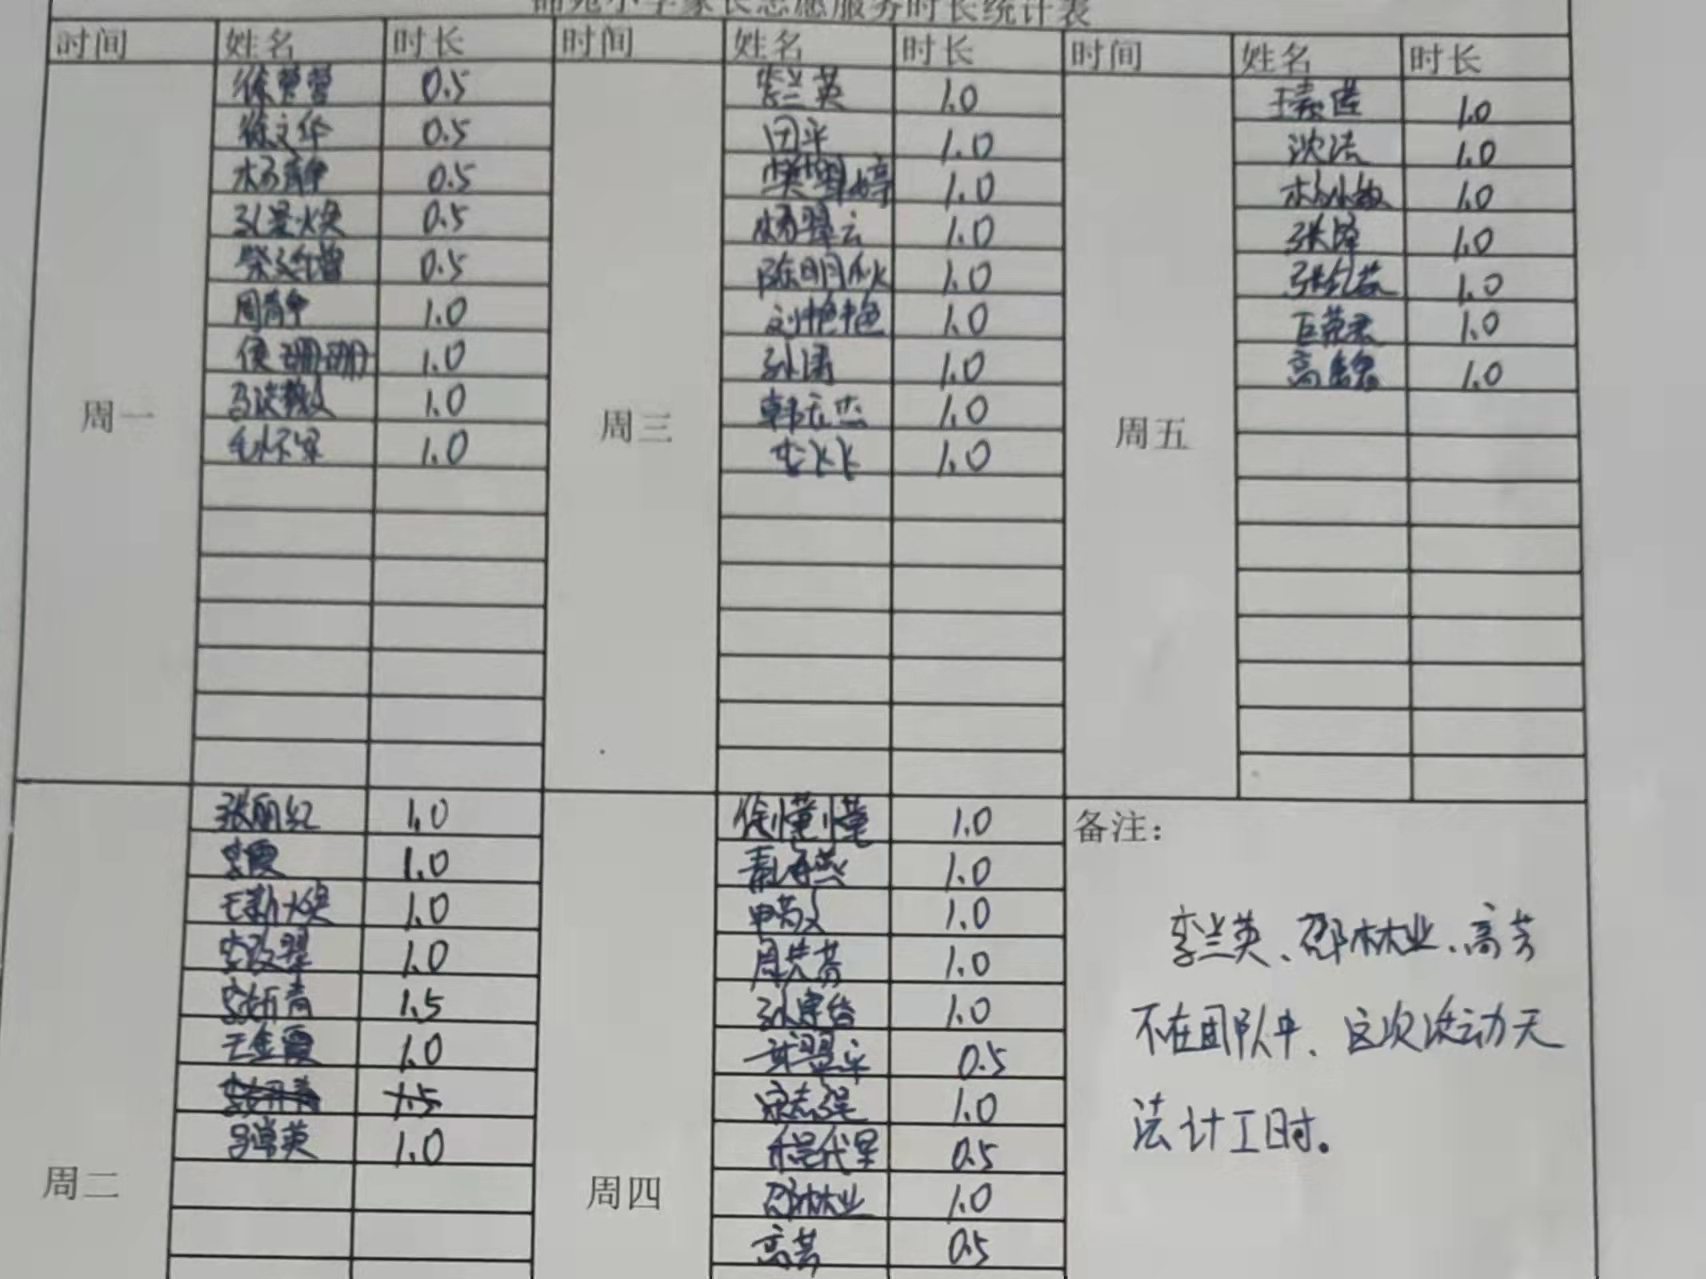 苑小学家长志愿服务时长统计表
时间 姓名 时长 时间 姓名 时长 时间 姓名 时长
周一
徐莹莹 0.5
徐文华 0.5
杨静 0.5
孙景焕 0.5
0.5
周静 1.0
侯珊珊 1.0
马洪敏 1.0
1.0
周三
李兰英 1.0
田平 1.0
樊婷 1.0
杨翠云 1.0
陈明秋 1.0
刘艳艳 1.0
孙涛 1.0
韩云杰 1.0
李长长 1.0
周五
王 1.0
沈洁 1.0
杨小敏 1.0
张峰 1.0
张 1.0
巨 1.0
高 1.0
周二
张丽红 1.0
李霞 1.0
王新焕 1.0
李改翠 1.0
李妍青 1.5
王金霞 1.0
李妍青 1.5
吕常英 1.0
周四
徐懂懂 1.0
燕 1.0
申敬文 1.0
周芳 1.0
孙 1.0
0.5
宋志强 1.0
程代军 0.5
邵林业 1.0
高芳 0.5
备注：
李兰英、邵林业、高芳
不在团队中、这次活动无
法计工时。